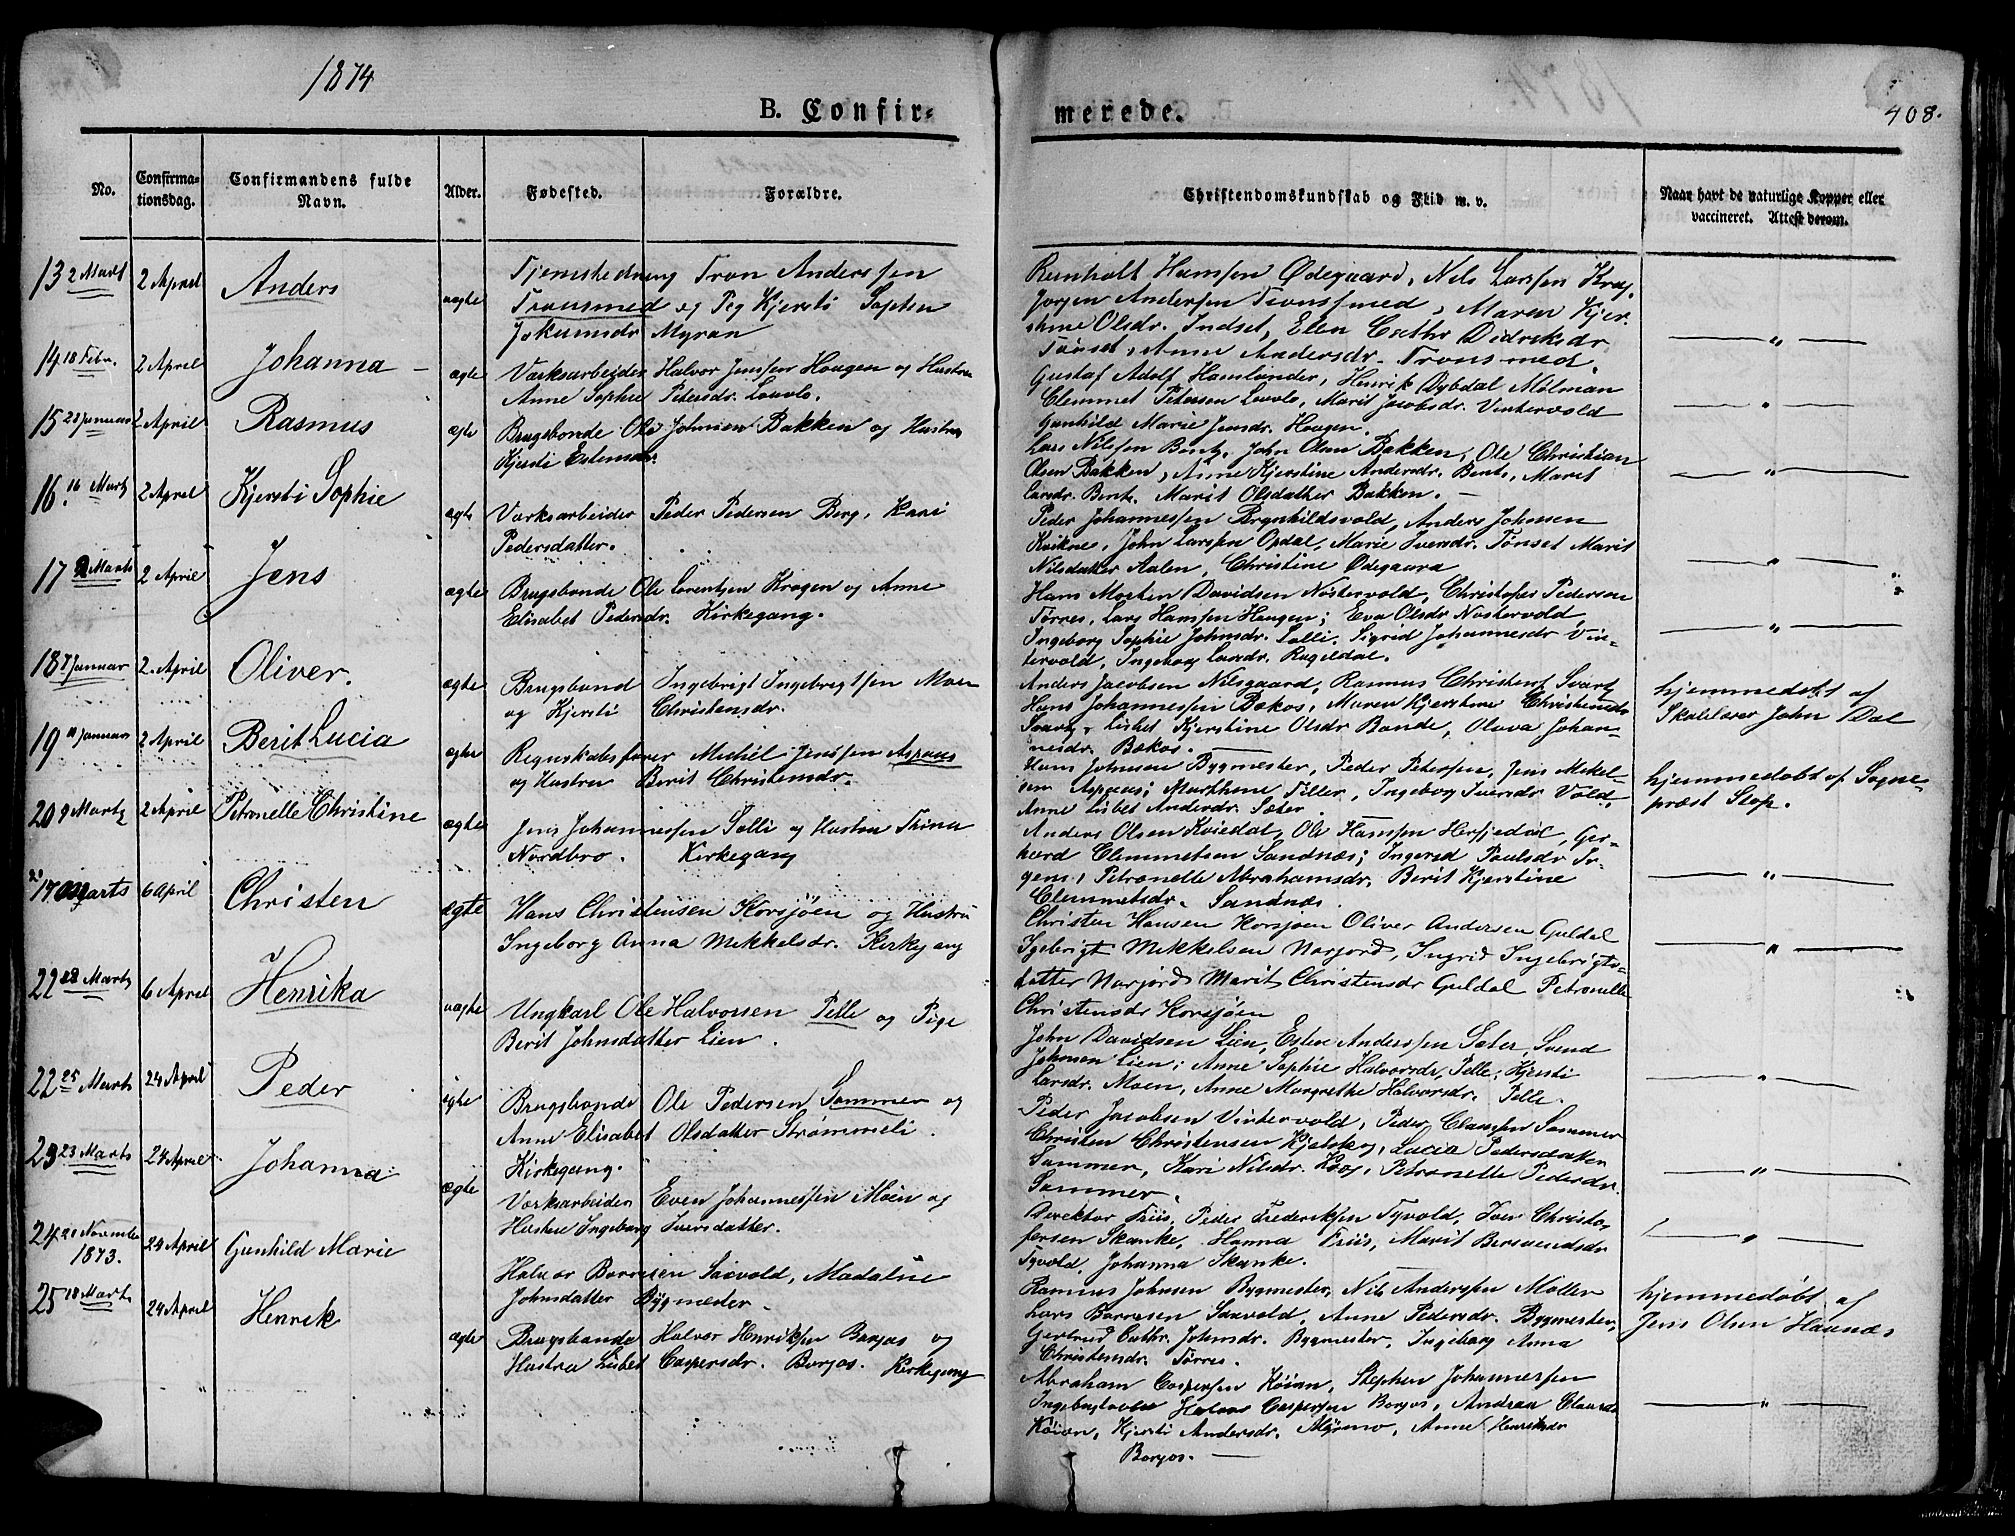 1874
B. Confirmerede.
408.
No.
Confirmationsdag.
Confirmandens fulde Navn.
Alder.
Fødested.
Forældre.
Christendomskundskab og Flid m. v.
Naar havt de naturlige Kopper eller vaccineret. Attest derom.
13 2 Marts 2 April Anders uægte
Tron Anderssen
Tronsmed og Pig Kjersti Sophie
Jokumsdr Myran
Hanssen Ødegaard, Nils Larssen
Jørgen Anderssen Tronsmed, Maren Kjer-
stine Olsdr. Indset, Elen Cathr Didriksdr
Tønset, Anne Andersdr. Tronsmed.
14 18 Febr. 2 April Johanna ægte
Værksarbeider Halvor Jenssen Hougen og Hustru
Anne Sophie Petersdr. Løvlo.
Gustaf Adolf Hamlander, Henrik Dybdal Mølman
Clemmet Petersen Løvlo, Marit Jacobsdr. Vintervold
Gunhild Marie Jensdr. Hougen.
15 28 Januar 2 April Rasmus ægte
Brugsbonde Ole Johnsen Bakken og Hustru
Kjersti Estensdr.
Lars Nilssen Bente, John Olsen Bakken, Ole Christian
Olsen Bakken, Anne Kjerstine Andersdr. Bente, Marit
Larsdr. Bent, Marit Olsdatter Bakken.
16. 16 Marts 2 April Kjersti Sophie ægte
Værksarbeider Peder Pedersen Berg, Kari
Pedersdatter.
Peder Johannessen Brynhildsvold, Anders Johnsen
Kvikne, John Larssen Opdal, Marie Iversdr. Tønset Marit
Nilsdatter Aalen, Christine Ødegaard
17 2 Marts 2 April Jens ægte
Brugsbonde Ole Lorentzen Krogen og Anne
Elisabet Pedersdr. Kirkegang.
Hans Morten Davidsen Nøstervold, Christofer Pedersen
Tørres, Lars Hanssen Hougen; Eva Olsdr Nøstervold,
Ingeborg Sophie Johnsdr. Solli, Sigrid Johannesdr Vin-
tervold, Ingeborg Larsdr. Rugeldal.
18 7 Januar 2 April Oliver. ægte
Brugsbond Ingebrigt Ingebrigtsen Moen
og Kjersti Christensdr.
Anders Jacobsen Nilsgaard, Rasmus Christens. Svart
Hans Johannessen Bekos, Maren Kjerstine Christensdr
Svart, Lisbet Kjerstine Olsdr Bonde, Olava Johan-
nesdr. Bekos.
hjemmedøbt af
Skolelærer John Dal
19 11 Januar 2 April Berit Lucia ægte
Regnskabsfører Michel Jenssen Aspaas
og Hustru Berit Christensdr.
Hans Johnsen Bygmester, Peder Peterssen, Jens Mikel-
sen Aspaas; Marthine Tiller, Ingeborg Iversdr Vold,
Anne Lisbet Andersdr. Sæter.
hjemmedøbt af Sogne-
præst Stop.
20 9 Marts 2 April Petronelle Christine ægte
Jens Johannessen Solli og Hustru Thina
Nordbro. Kirkegang
Anders Olsen Kviedal, Ole Hanssen Herfjedal, Ger-
hard Clemmetsen Sandnæs; Ingerid Paulsdr In-
gem, Petronelle Abrahamsdr. Berit Kjerstine
Clemmetsdr. Sandnæs.
21 17 Marts 6 April Christen ægte
Hans Christensen Korsjøen og Hustru
Ingeborg Anna Mikkelsdr. Kirkegang
Christen Hansen Korsjøen Oliver Andersen Guldal
Igebrigt Mikkelsen Narjord, Ingrid Ingebrigts-
datter Narjord Marit Christensdr Guldal Petronelle
Christensdr Korsjøen
22 28 Marts 6 April Henrika uægte
Ungkarl Ole Halvorsen Pelle og Pige
Berit Johnsdatter Lien.
John Davidsen Lien, Esten Anderssen Sæter, Svend
Johnsen Lien; Anne Sophie Halvorsdr. Pelle, Kjersti
Larsdr. Moen, Anne Margrethe Halvorsdr. Pelle.
22 25 Marts 24 April Peder ægte
Brugsbonde Ole Pedersen Sommer og
Anne Elisabet Olsdatter Strømmeli.
Kirkegang.
Peder Jacobsen Vintervold, Peder Clausen Sommer
Christen Christensen Kjelskog, Lucia Pedersdatter
Sommer, Kari Nilsdr. Krog, Petronelle Pedersdr.
Sommer.
23 23 Marts 24 April Johanna ægte
Værksarbeider Even Johannessen Moen og
Hustru Ingeborg Iversdatter.
Direktør Friis, Peder Frederiksen Tyvold, Iver Christo-
fersen Skanke, Hanna Friis, Marit Bersvendsdr
Tyvold, Johanna Skanke.
24 21 November 1873. 24 April Gunhild Marie
Halvor Børresen Saxvold, Madaline
Johnsdatter Bygmester.
Rasmus Johnsen Bygmester, Nils Anderssen Møller
Lars Børresen Saxvold, Anne Pedersdr. Bygmester,
Gertrud Cathr. Johnsdr. Bygmester, Ingeborg Anna
Christensdr. Tørres.
hjemmedøbt af
Jens Olsen Havnæs
25 18 Marts 24 April Henrik ægte
Brugsbonde Halvor Henriksen Borgos og
Hustru Lisbet Caspersdr. Borgos. Kirkegang
Abraham Caspersen Køian, Stephen Johannessen
Halvor Caspersen Borgos, Andrea Clausdr.
Køian, Kjersti Andersdr. Myrmo, Anne Henriksdr
Borgos.